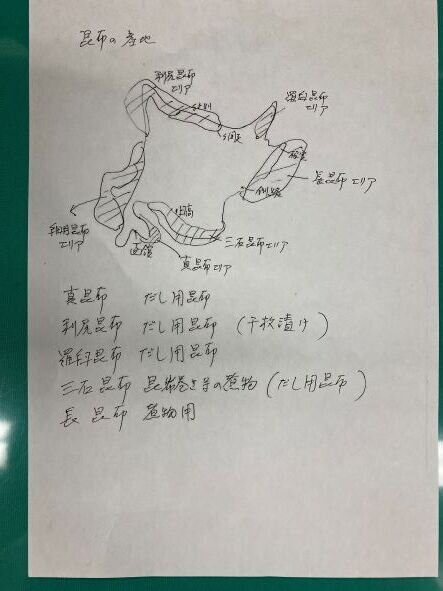 昆布の産地
利尻昆布
エリア
羅臼昆布
エリア
網走
根室
長昆布エリア
釧路
日高
三石昆布エリア
函館
真昆布エリア
エリア
真昆布 だし用昆布
利尻昆布 だし用昆布 (千枚漬け)
羅臼昆布 だし用昆布
三石昆布 昆布巻き等の煮物(だし用昆布)
長昆布 煮物用